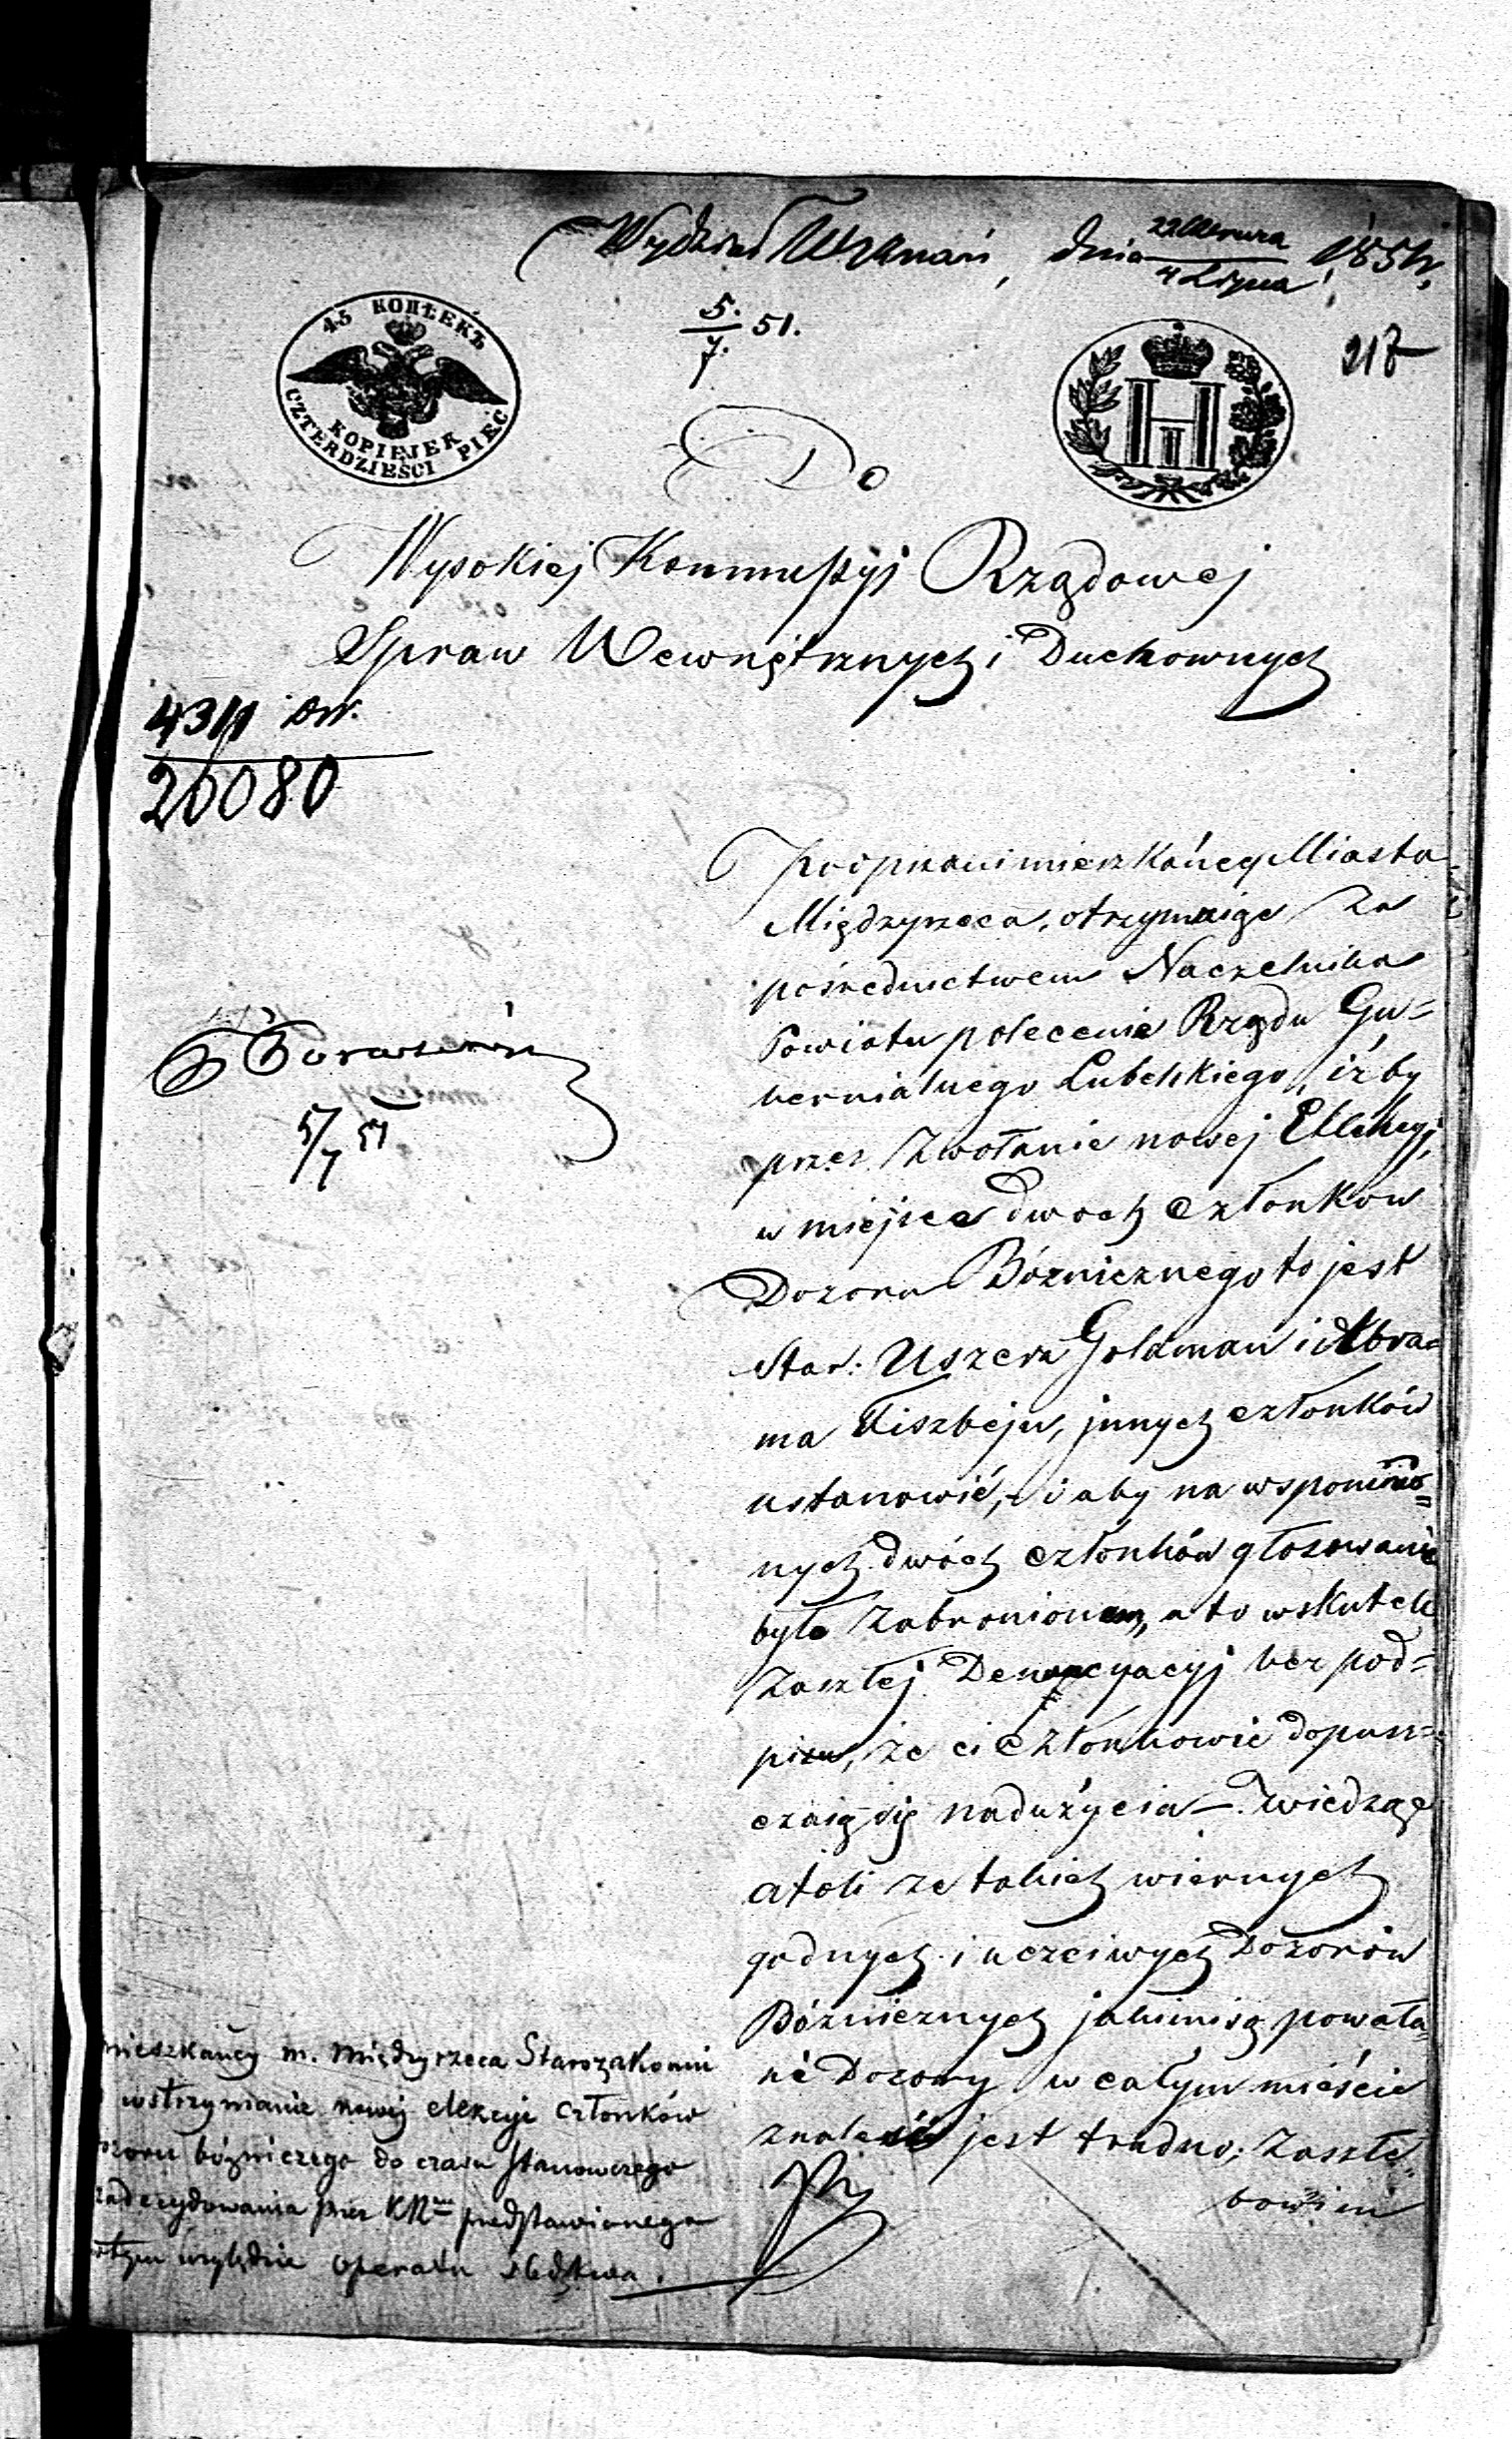 Wydział Wyznań, dnia 22 Czerwca / 4 Lipca 1851 r.
5./7. 51.
217
45 КОПѢЕКЪ
KOPIEJEK
CZTERDZIEŚCI PIĘĆ
Do
Wysokiej Kommissyi Rządowej
Spraw Wewnętrznych i Duchownych
4311 DW.
20080
5/7 51
Podpisani mieszkańcy Miasta
Międzyrzeca, otrzymuiąc za
pośrednictwem Naczelnika
Powiatu polecenie Rządu Gu=
bernialnego Lubelskiego, iżby
przez zwołanie nowej Ellekcyj,
w miejsce dwoch członkow
Dozoru Bóżnicznego to jest
Star: Uszera Goldman i Abra=
ma Fiszbejn, jnnych członków
ustanowić, – i aby na wspomnio=
nych dwóch członków głosowanie
było zabronionem, a to wskutek
Zaszłej Denuncyacyj bez pod=
pisu, że ci członkowie dopusz=
czaią się nadużycia – Zwiedząc
atoli że takich wiernych
godnych i uczciwych Dozorów
Bóżnicznych jakimi są powoła=
ne Dozory w całym mieście
znaleść jest trudno; Zaszłe
bowiem
mieszkańcy m. Międzyrzeca Starozakonni
wstrzymanie nowej elekcyi członków
ozoru bóżniczego do czasu stanowczego
zadecydowania przez KR predstawionego
wtym względzie operatu śledztwa.